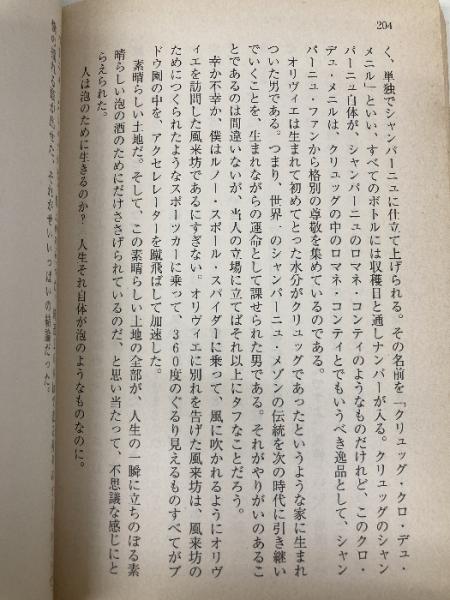 204
く、単独でシャンパーニュに仕立て上げられる。その名前を「クリュッグ・クロ・デュ・
メニル」といい、すべてのボトルには収穫日と通しナンバーが入る。クリュッグのシャン
パーニュ自体が、シャンパーニュのロマネ・コンティのようなものだけれど、このクロ・
デュ・メニルは、クリュッグの中のロマネ・コンティとでもいうべき逸品として、シャン
パーニュ・ファンから格別の尊敬を集めているのである。
オリヴィエは生まれて初めてとった水分がクリュッグであったというような家に生まれ
ついた男である。つまり、世界一のシャンパーニュ・メゾンの伝統を次の時代に引き継い
でいくことを、生まれながらの運命として課せられた男である。それがやりがいのあるこ
とであるのは間違いないが、当人の立場に立てばそれ以上にタフなことだろう。
幸か不幸か、僕はルノー・スポール・スパイダーに乗って、風に吹かれるようにオリヴ
ィエを訪問した風来坊であるにすぎない。オリヴィエに別れを告げた風来坊は、風来坊の
ためにつくられたようなスポーツカーに乗って、360度のぐるり見えるものすべてがブ
ドウ園の中を、アクセレレーターを蹴飛ばして加速した。
素晴らしい土地だ。そして、この素晴らしい土地の全部が、人生の一瞬に立ちのぼる素
晴らしい泡の酒のためにだけささげられているのだ、と思い当たって、不思議な感じにと
らえられた。
人は泡のために生きるのか? 人生それ自体が泡のようなものなのに。